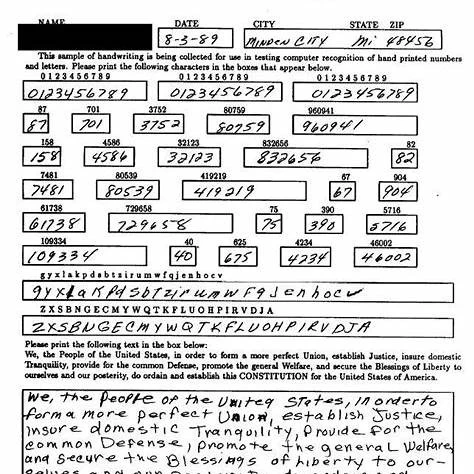 NAME DATE CITY STATE ZIP
8-3-89 MINDEN CITY Mi 48456
This sample of handwriting is being collected for use in testing computer recognition of hand printed numbers
and letters. Please print the following characters in the boxes that appear below.
0123456789 0123456789 0123456789
0123456789 0123456789 0123456789
87 701 3752 80759 960941
87 701 3752 80759 960941
158 4586 32123 832656 82
158 4586 32123 832656 82
7481 80539 419219 67 904
7481 80539 419219 67 904
61738 729658 75 390 5716
61738 729658 75 390 5716
109334 40 625 4234 46002
109334 40 675 4234 46002
gyxlakpdsbtzirumwfqjenhocv
gyxlakpdsbtzirumwfqjenhocv
ZXSBNGECMYWQTKFLUOHPIRVDJA
ZXSBNGECMYWQTKFLUOHPIRVDJA
Please print the following text in the box below:
We, the People of the United States, in order to form a more perfect Union, establish Justice, insure domestic
Tranquility, provide for the common Defense, promote the general Welfare, and secure the Blessings of Liberty to
ourselves and our posterity, do ordain and establish this CONSTITUTION for the United States of America.
We, the People of the United States, in order to
form a more perfect Union, establish Justice,
insure domestic Tranquility, Provide for the
common Defense, promote the general Welfare,
and secure the Blessings of Liberty to our-